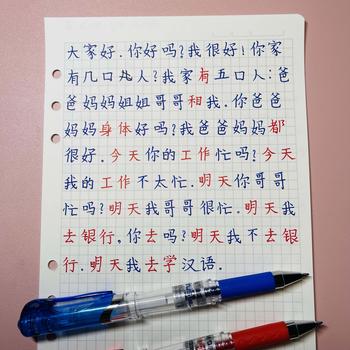 大家好.你好吗?我很好!你家
有几口人?我家有五口人:爸
爸妈妈姐姐哥哥相我.你爸爸
妈妈身体好吗?我爸爸妈妈都
很好.今天你的工作忙吗?今天
我的工作不太忙.明天你哥哥
忙吗?明天我哥哥很忙.明天我
去银行,你去吗?明天我不去银
行.明天我去学汉语.